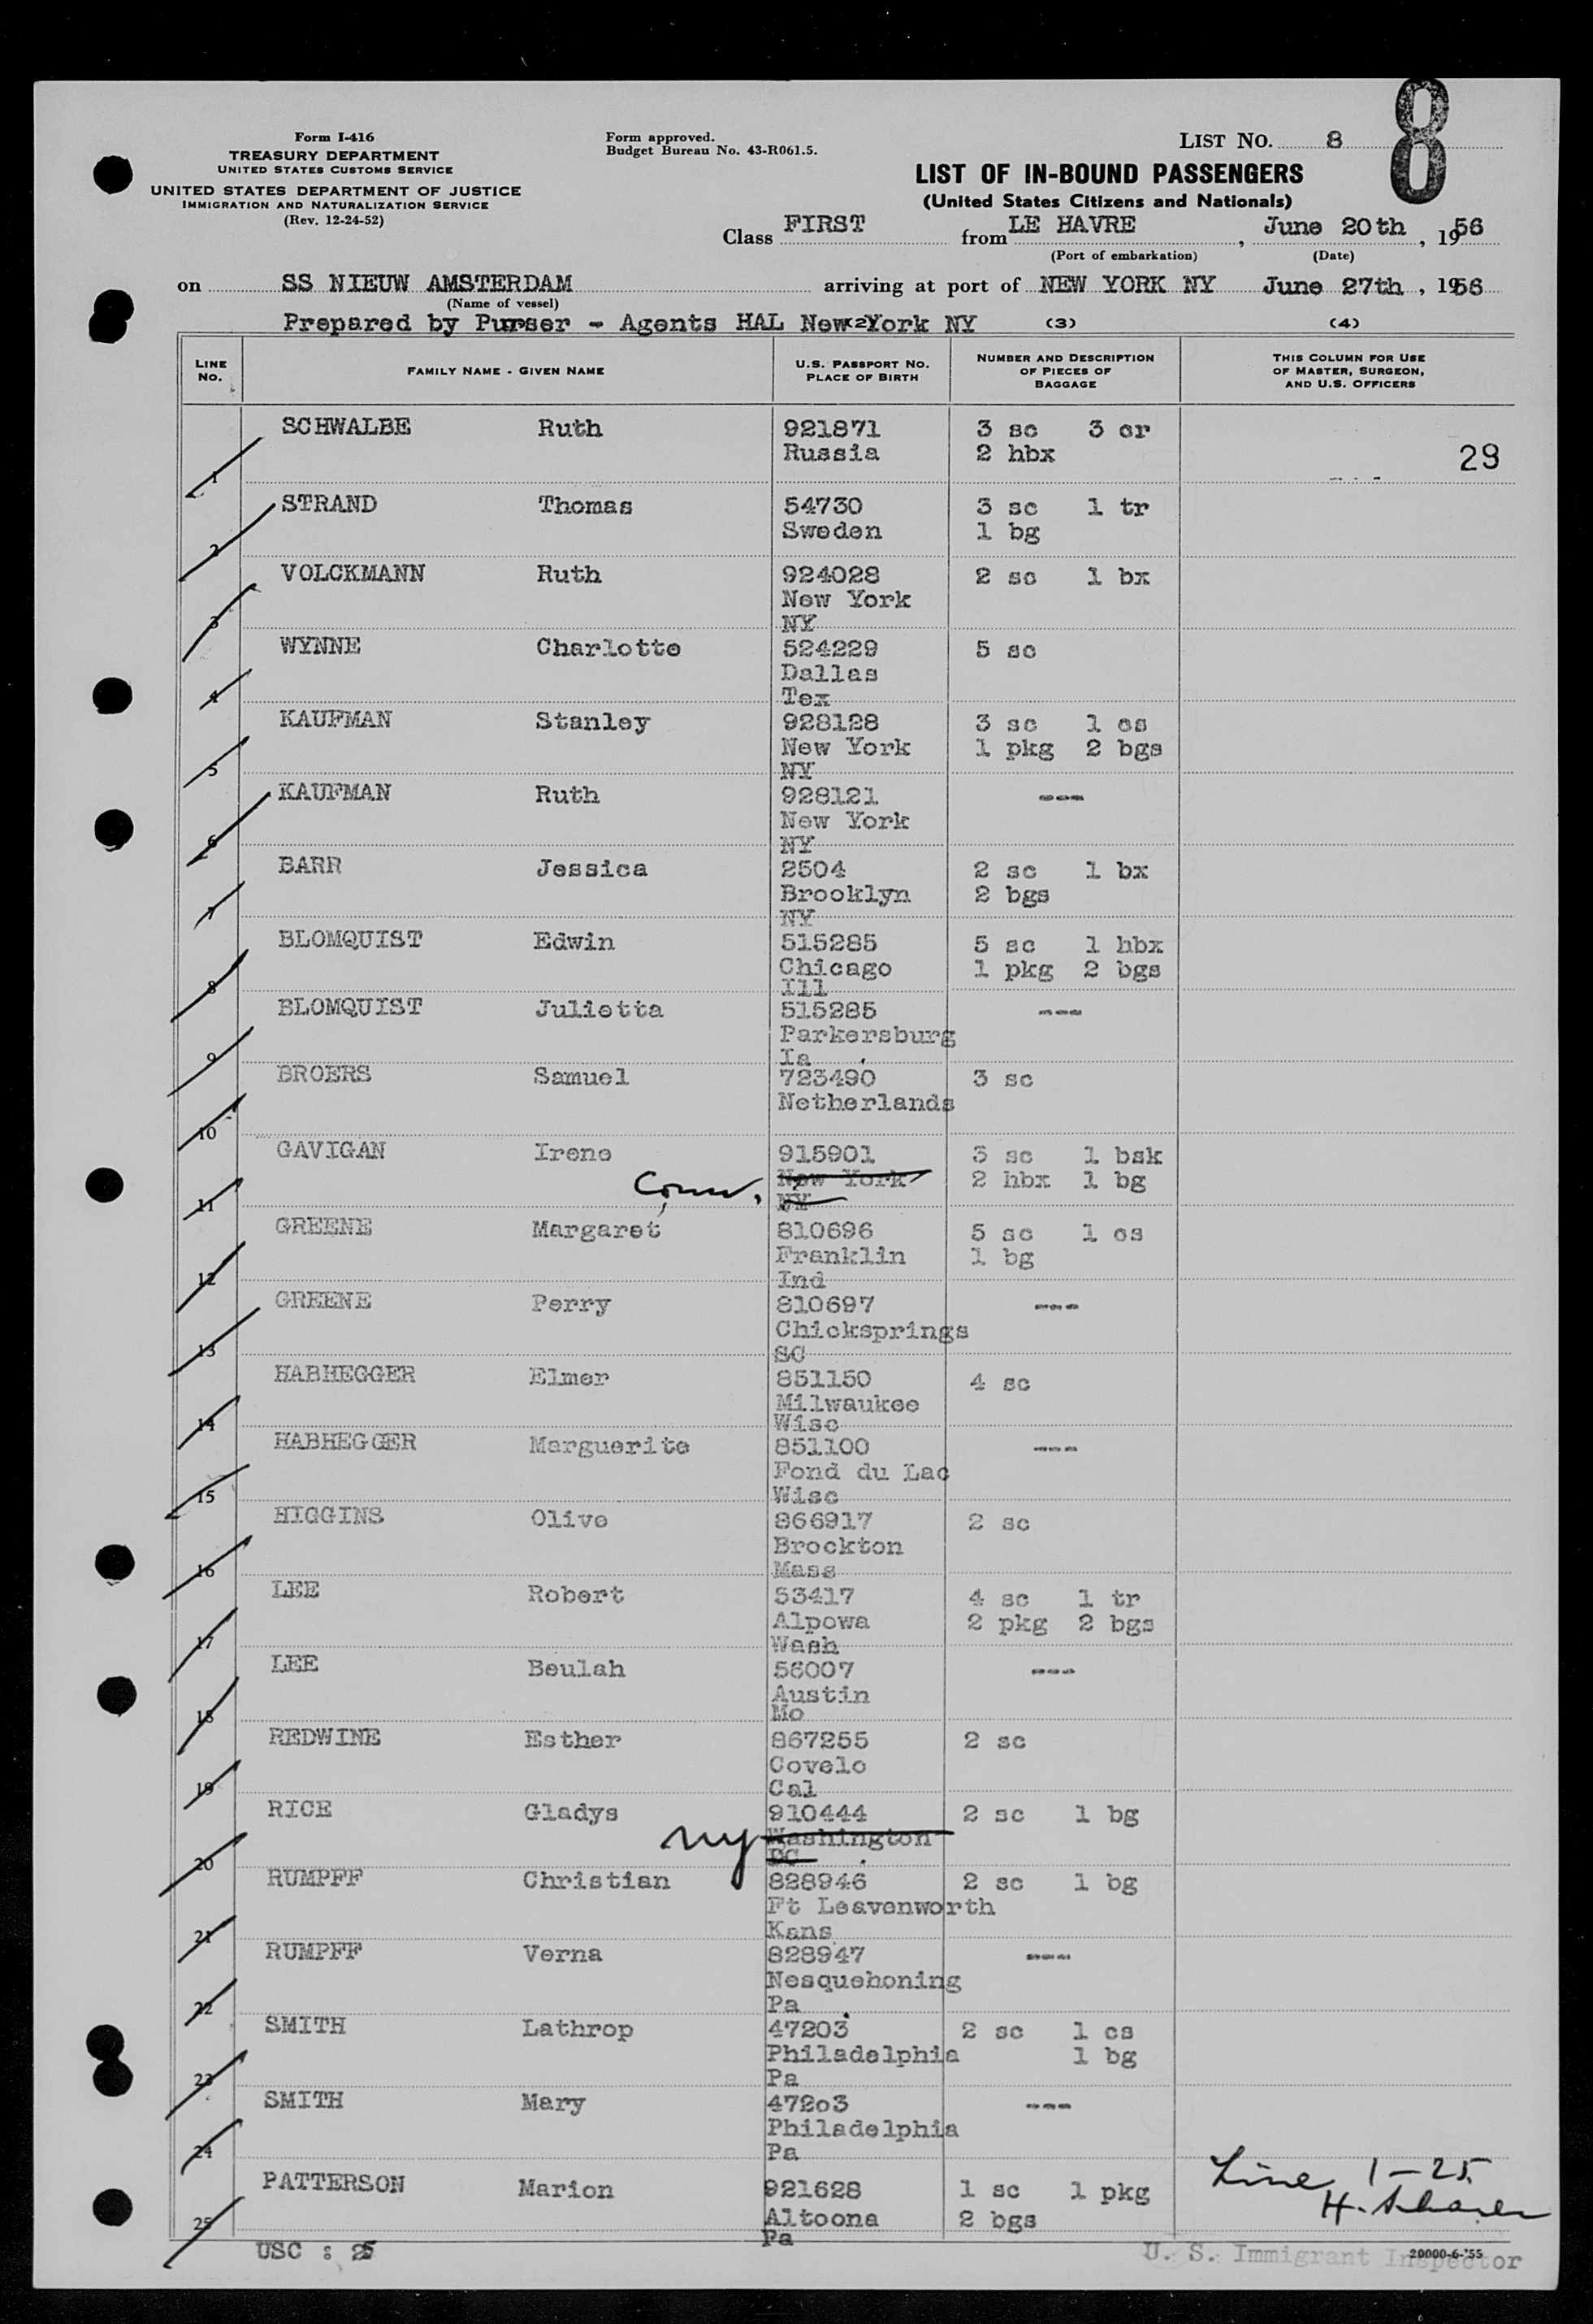 8
Form I-416
TREASURY DEPARTMENT
UNITED STATES CUSTOMS SERVICE
UNITED STATES DEPARTMENT OF JUSTICE
IMMIGRATION AND NATURALIZATION SERVICE
(Rev. 12-24-52)
Form approved.
Budget Bureau No. 43-R061.5.
LIST NO. 8
LIST OF IN-BOUND PASSENGERS
(United States Citizens and Nationals)
Class FIRST from LE HAVRE, June 20th, 1956
(Port of embarkation) (Date)
on SS NIEUW AMSTERDAM arriving at port of NEW YORK NY June 27th, 1956
(Name of vessel)
Prepared by Purser - Agents HAL New York NY (2) (3) (4)
LINE NO. FAMILY NAME - GIVEN NAME U.S. PASSPORT NO. PLACE OF BIRTH NUMBER AND DESCRIPTION OF PIECES OF BAGGAGE THIS COLUMN FOR USE OF MASTER, SURGEON, AND U.S. OFFICERS
SCHWALBE Ruth 921871 3 sc 3 cr
Russia 2 hbx 29
1
STRAND Thomas 54730 3 sc 1 tr
Sweden 1 bg
2
VOLCKMANN Ruth 924028 2 sc 1 bx
New York
3 NY
WYNNE Charlotte 524229 5 sc
Dallas
4 Tex
KAUFMAN Stanley 928128 3 sc 1 cs
New York 1 pkg 2 bgs
5 NY
KAUFMAN Ruth 928121 ---
New York
6 NY
BARR Jessica 2504 2 sc 1 bx
Brooklyn 2 bgs
7 NY
BLOMQUIST Edwin 515285 5 sc 1 hbx
Chicago 1 pkg 2 bgs
8 Ill
BLOMQUIST Julietta 515285 ---
Parkersburg
9 Ia
BROERS Samuel 723490 3 sc
Netherlands
10
GAVIGAN Irene 915901 3 sc 1 bsk
Conn. New York 2 hbx 1 bg
11 NY
GREENE Margaret 810696 5 sc 1 cs
Franklin 1 bg
12 Ind
GREENE Perry 810697 ---
Chicksprings
13 SC
HABHEGGER Elmer 851150 4 sc
Milwaukee
14 Wisc
HABHEGGER Marguerite 851100 ---
Fond du Lac
15 Wisc
HIGGINS Olive 866917 2 sc
Brockton
16 Mass
LEE Robert 53417 4 sc 1 tr
Alpowa 2 pkg 2 bgs
17 Wash
LEE Beulah 56007 ---
Austin
18 Mo
REDWINE Esther 867255 2 sc
Covelo
19 Cal
RICE Gladys 910444 2 sc 1 bg
NY Washington
20 DC
RUMPFF Christian 828946 2 sc 1 bg
Ft Leavenworth
21 Kans
RUMPFF Verna 828947 ---
Nesquehoning
22 Pa
SMITH Lathrop 47203 2 sc 1 cs
Philadelphia 1 bg
23 Pa
SMITH Mary 47203 ---
Philadelphia
24 Pa
PATTERSON Marion 921628 1 sc 1 pkg
Altoona 2 bgs
25 Pa
Line 1-25
USC : 25
U. S. Immigrant Inspector
20000-6-'55